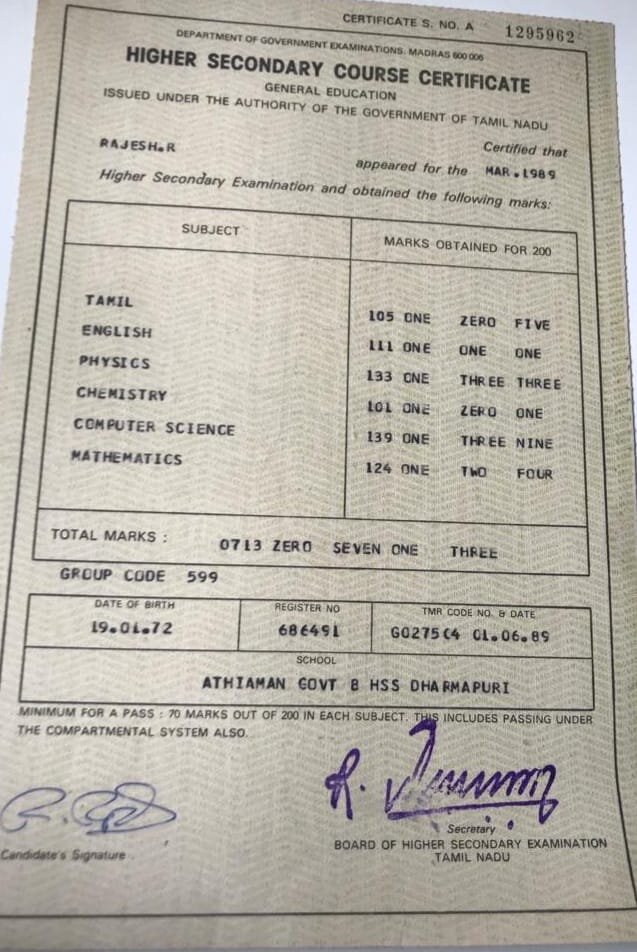 CERTIFICATE S. NO. A 1295962
DEPARTMENT OF GOVERNMENT EXAMINATIONS. MADRAS 600 006
HIGHER SECONDARY COURSE CERTIFICATE
GENERAL EDUCATION
ISSUED UNDER THE AUTHORITY OF THE GOVERNMENT OF TAMIL NADU
Certified that
RAJESH.R
appeared for the MAR.1989
Higher Secondary Examination and obtained the following marks:
SUBJECT MARKS OBTAINED FOR 200
TAMIL 105 ONE ZERO FIVE
ENGLISH 111 ONE ONE ONE
PHYSICS 133 ONE THREE THREE
CHEMISTRY 101 ONE ZERO ONE
COMPUTER SCIENCE 139 ONE THREE NINE
MATHEMATICS 124 ONE TWO FOUR
TOTAL MARKS : 0713 ZERO SEVEN ONE THREE
GROUP CODE 599
DATE OF BIRTH REGISTER NO TMR CODE NO. & DATE
19.01.72 686491 G0275C4 01.06.89
SCHOOL
ATHIAMAN GOVT B HSS DHARMAPURI
MINIMUM FOR A PASS : 70 MARKS OUT OF 200 IN EACH SUBJECT. THIS INCLUDES PASSING UNDER
THE COMPARTMENTAL SYSTEM ALSO.
Candidate's Signature
Secretary
BOARD OF HIGHER SECONDARY EXAMINATION
TAMIL NADU